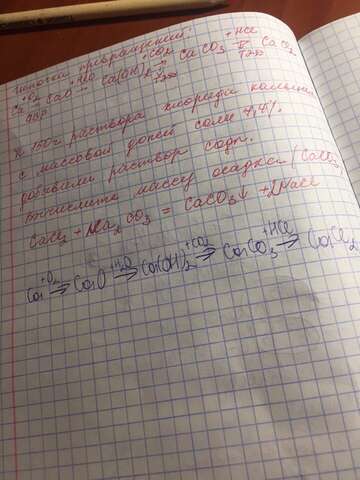 Цепочка превращений:
Ca +O2 → CaO +H2O → Ca(OH)2 +CO2 → CaCO3 +HCl → CaCl2
К 150г раствора хлорида кальция
с массовой долей соли 7,4%
добавили раствор соды.
Вычислите массу осадка (CaCO3)
CaCl2 + Na2CO3 = CaCO3↓ + 2NaCl
Ca +O2 → CaO +H2O → Ca(OH)2 +CO2 → CaCO3 +HCl → CaCl2